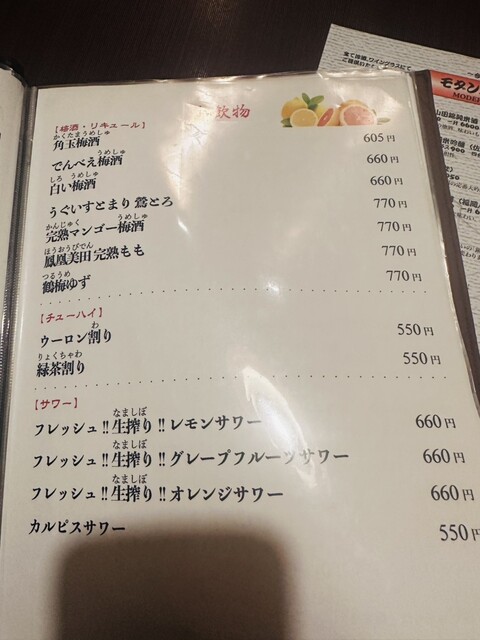 飲物
【梅酒・リキュール】
かくたまうめしゅ
角玉梅酒 605円
うめしゅ
でんべえ梅酒 660円
しろ うめしゅ
白い梅酒 660円
うぐいすとまり 鶯とろ 770円
かんじゅく うめしゅ
完熟マンゴー梅酒 770円
ほうおうびでん
鳳凰美田 完熟もも 770円
つるうめ
鶴梅ゆず 770円
【チューハイ】
わ
ウーロン割り 550円
りょくちゃわ
緑茶割り 550円
【サワー】
なましぼ
フレッシュ!!生搾り!!レモンサワー 660円
なましぼ
フレッシュ!!生搾り!!グレープフルーツサワー 660円
なましぼ
フレッシュ!!生搾り!!オレンジサワー 660円
カルピスサワー 550円
モダン
MODE